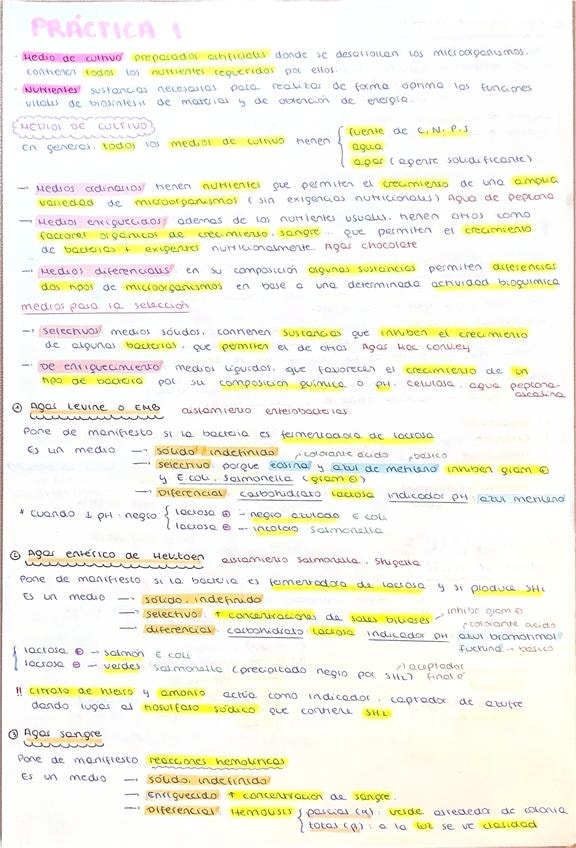 PRÁCTICA 1
· Medio de cultivo preparados artificiales donde se desarrollan los microorganismos.
contienen todos los nutrientes requeridos por ellos.
· Nutrientes sustancias necesarias para realizar de forma óptima las funciones
vitales de biosíntesis de materias y de obtención de energía.
MEDIOS DE CULTIVO
En general, todos los medios de cultivo tienen { fuente de C, N, P, S
agua
agar (agente solidificante)
→ Medios ordinarios tienen nutrientes que permiten el crecimiento de una amplia
variedad de microorganismos (sin exigencias nutricionales) Agua de peptona
→ Medios enriquecidos, además de los nutrientes usuales, tienen otros como
factores orgánicos de crecimiento, sangre... que permiten el crecimiento
de bacterias + exigentes nutricionalmente. Agar chocolate
→ Medios diferenciales en su composición algunas sustancias permiten diferenciar
dos tipos de microorganismos en base a una determinada actividad bioquímica
medios para la selección
→ Selectivos: medios sólidos, contienen sustancias que inhiben el crecimiento
de algunas bacterias, que permiten el de otros Agar Mac Conkey
→ De enriquecimiento medios líquidos, que favorecen el crecimiento de un
tipo de bacteria por su composición química o pH. celulosa, agua peptona-
alcalina
① Agar Levine o EMB aislamiento enterobacterias
Pone de manifiesto si la bacteria es fermentadora de lactosa
Es un medio → sólido indefinido colorante ácido básico
→ selectivo porque eosina y azul de metileno inhiben gram ⊕
y E.coli, Salmonella (gram ⊖)
→ Diferencial carbohidrato lactosa indicador pH: azul metileno
* Cuando ↓ pH: negro { lactosa ⊕ → negro azulado E coli
lactosa ⊖ → incoloro Salmonella
② Agar entérico de Hektoen aislamiento Salmonella, Shigella
Pone de manifiesto si la bacteria es fermentadora de lactosa y si produce SH₂
Es un medio → sólido, indefinido
→ selectivo: ↑ concentraciones de sales biliares → inhibe gram ⊕
→ diferencial: carbohidrato lactosa indicador pH: azul bromotimol colorante ácido
fuchina → básico
{ lactosa ⊕ → salmón E coli
lactosa ⊖ → verdes Salmonella (precipitado negro por SH₂) aceptador final e⁻
!! citrato de hierro y amonio actúa como indicador, captador de azufre
dando lugar al tiosulfato sódico que contiene SH₂
③ Agar sangre
Pone de manifiesto reacciones hemolíticas
Es un medio → sólido, indefinido
→ Enriquecido ↑ concentración de sangre.
→ Diferencial: Hemólisis { parcial (α): verde alrededor de colonia
total (β): a la luz se ve claridad